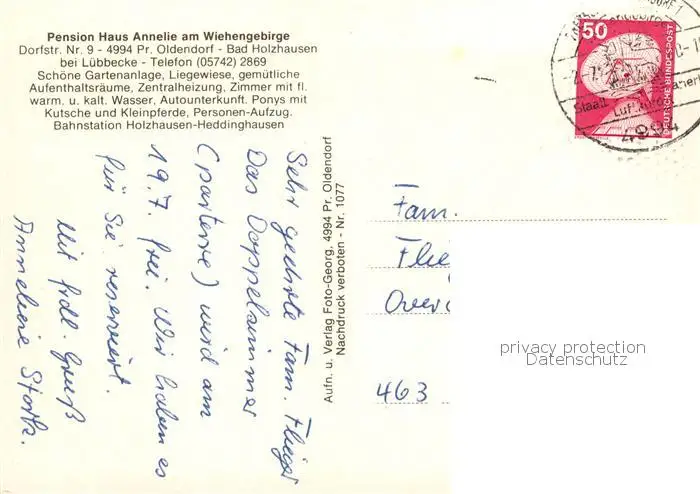 Pension Haus Annelie am Wiehengebirge
Dorfstr. Nr. 9 - 4994 Pr. Oldendorf - Bad Holzhausen
bei Lübbecke - Telefon (05742) 2869
Schöne Gartenanlage, Liegewiese, gemütliche
Aufenthaltsräume, Zentralheizung, Zimmer mit fl.
warm. u. kalt. Wasser, Autounterkunft. Ponys mit
Kutsche und Kleinpferde, Personen-Aufzug.
Bahnstation Holzhausen-Heddinghausen
Sehr geehrte Fam. Flieger
Das Doppelzimmer
(parterre) wird am
19.7. frei. Wir haben es
für Sie reserviert.
Mit frdl. Gruß
Anneliese
Aufn. u. Verlag Foto-Georg, 4994 Pr. Oldendorf
Nachdruck verboten - Nr. 1077
50
DEUTSCHE BUNDESPOST
Staatl. Luftkurort
4994
Fam.
Flie
Over
463
privacy protection
Datenschutz